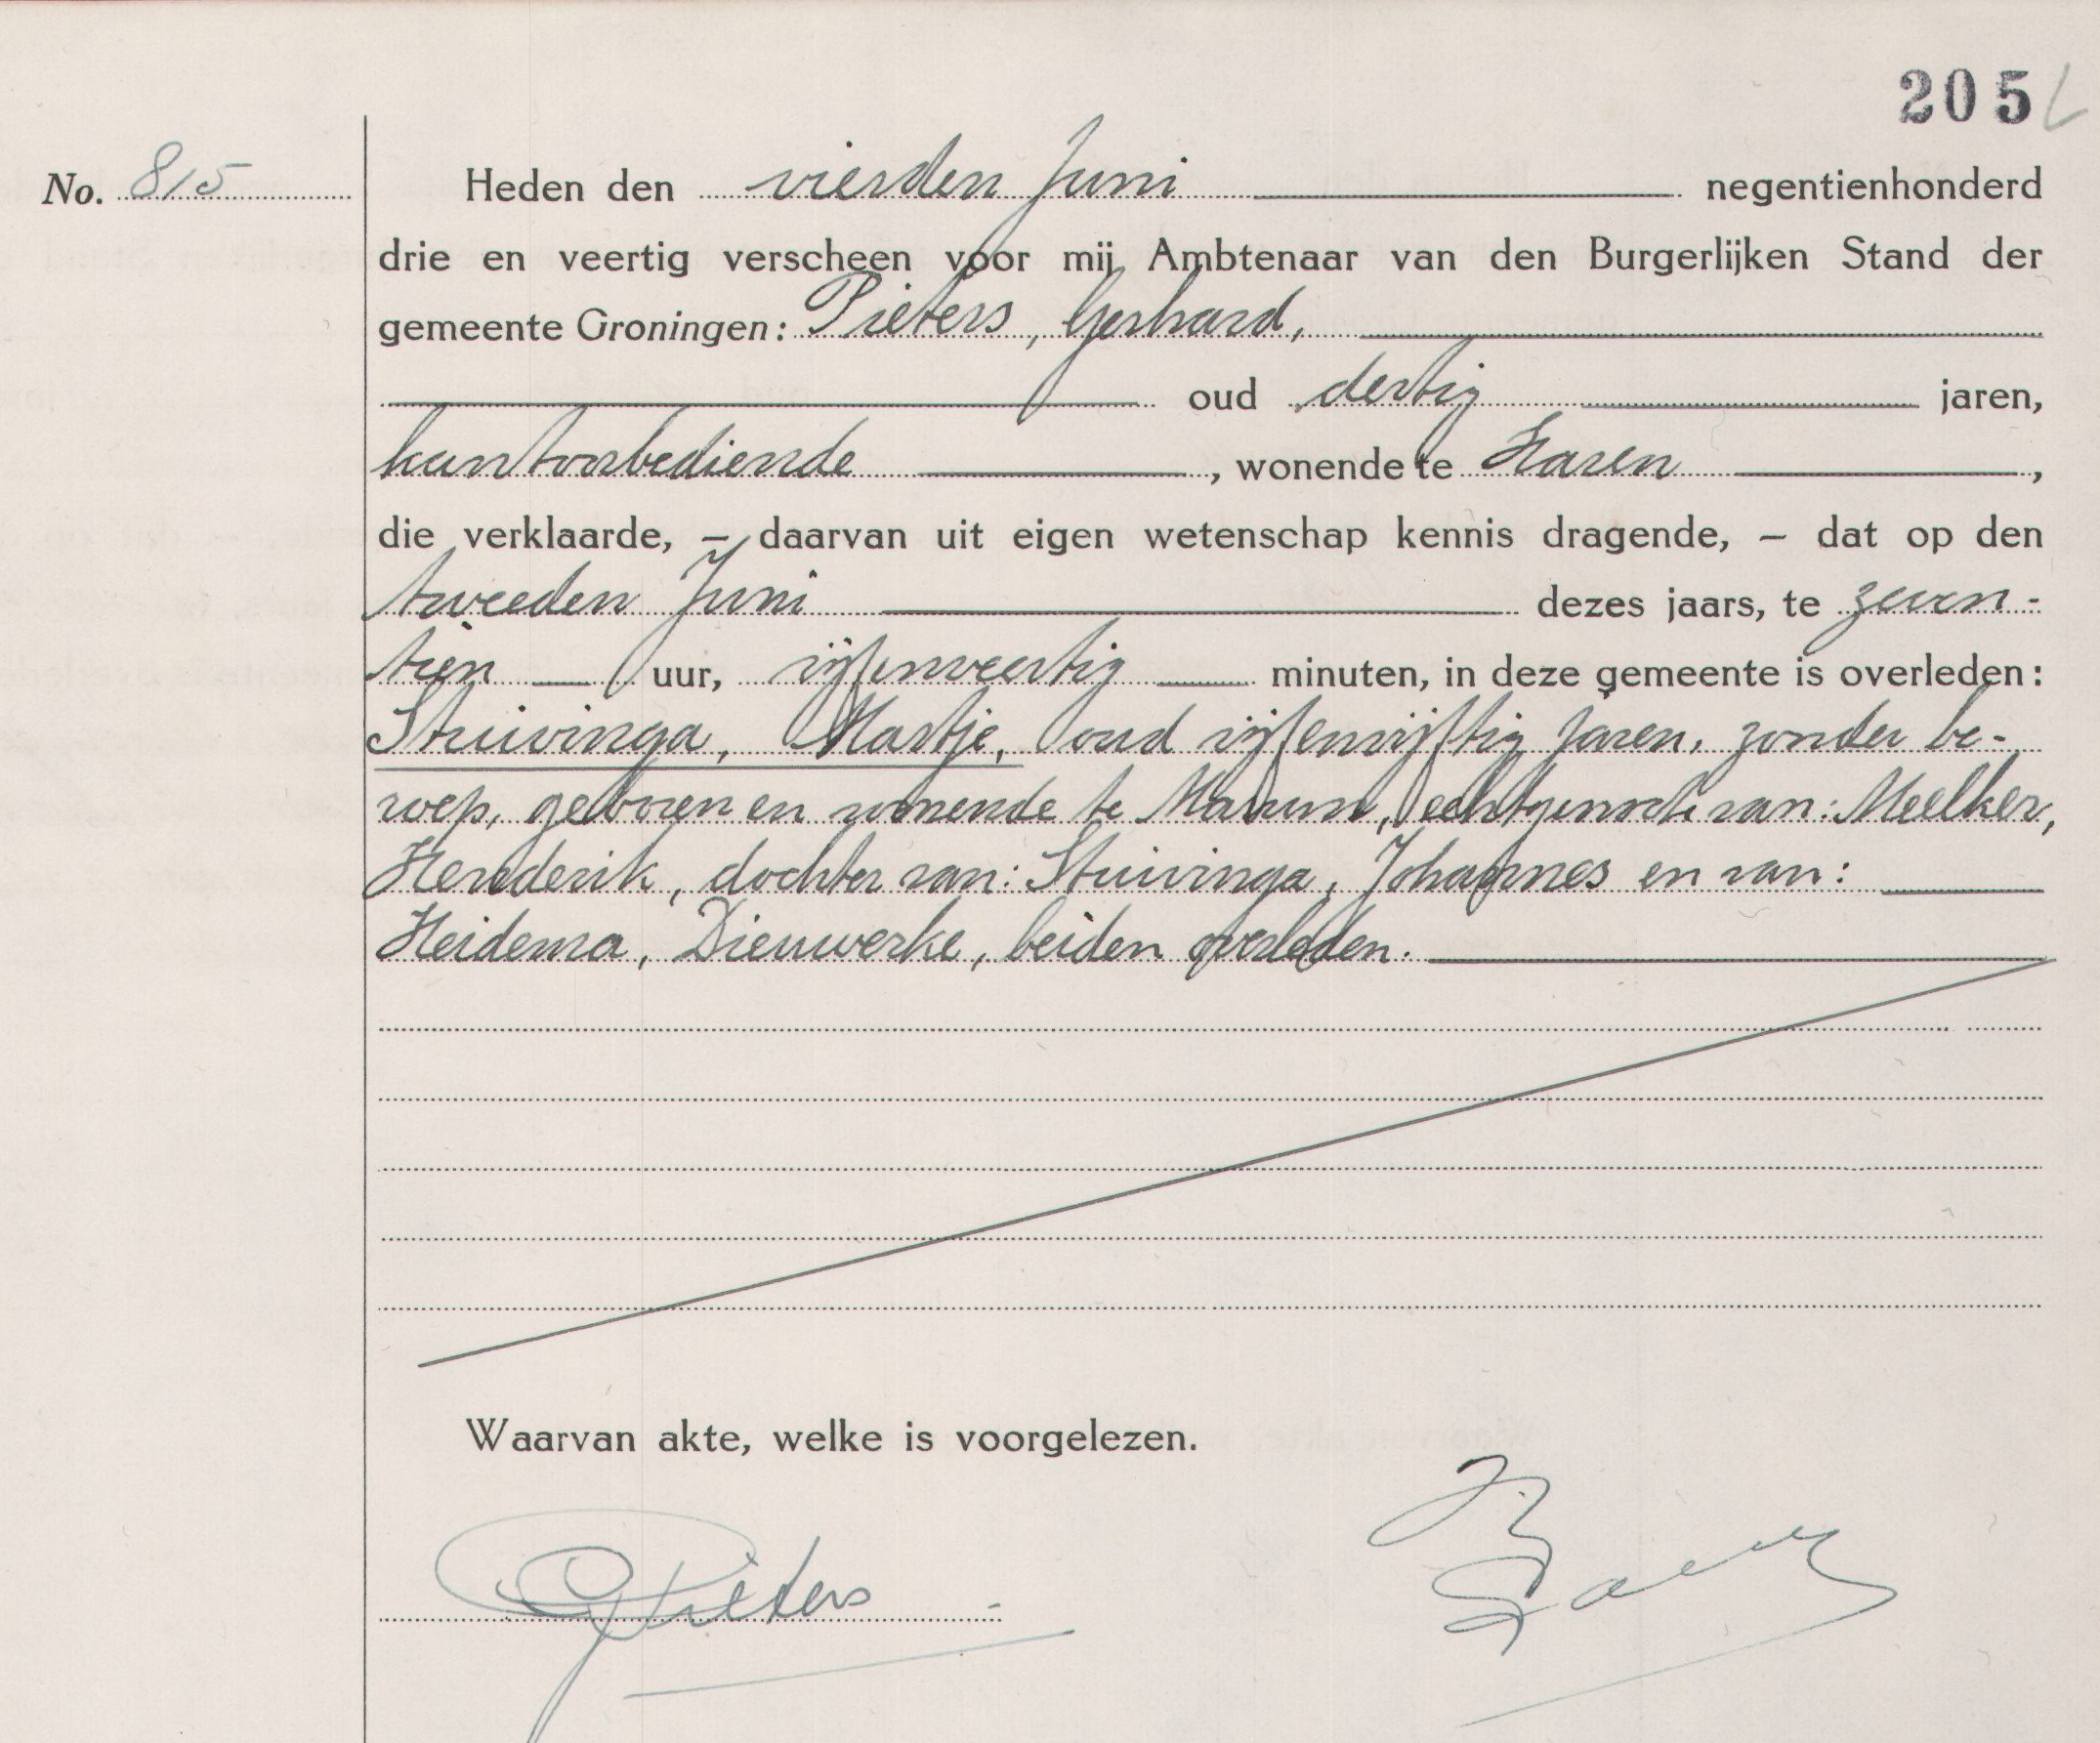 205
No. 815
Heden den vierden Juni negentienhonderd
drie en veertig verscheen voor mij Ambtenaar van den Burgerlijken Stand der
gemeente Groningen: Pieters, Gerhard,
oud dertig jaren,
kantoorbediende, wonende te Haren,
die verklaarde, – daarvan uit eigen wetenschap kennis dragende, – dat op den
tweeden Juni dezes jaars, te zeven-
tien uur, vijfenveertig minuten, in deze gemeente is overleden:
Stuivinga, Martje, oud vijfenvijftig jaren, zonder be-
roep, geboren en wonende te Marum, echtgenoote van: Meelker,
Henderik, dochter van: Stuivinga, Johannes en van:
Heidema, Dieuwerke, beiden overleden.
Waarvan akte, welke is voorgelezen.
GPieters